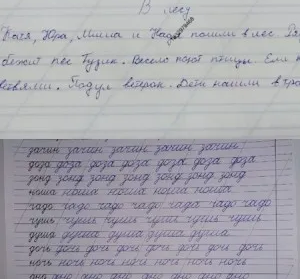 В лесу
Катя, Юра, Миша и Надя пошли в лес. Ря
бежит пёс Тузик. Весело поют птицы. Ели
ветвями. Подул ветерок. Дети нашли в тра
зачин зачин зачин зачин зачин
доза доза доза доза доза доза
зонд зонд зонд зонд зонд зонд
ноша ноша ноша ноша ноша
чадо чадо чадо чадо чадо чадо
чушь чушь чушь чушь чушь чушь
душа душа душа душа душа
дочь дочь дочь дочь дочь дочь дочь
ночь ночь ночь ночь ночь ночь
дно дно дно дно дно дно